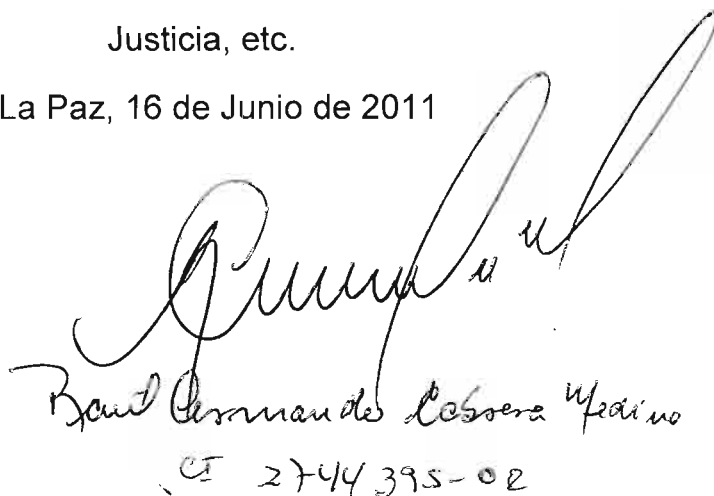 Justicia, etc.
La Paz, 16 de Junio de 2011
Raul Cabrera Medina
CI 2744395-02